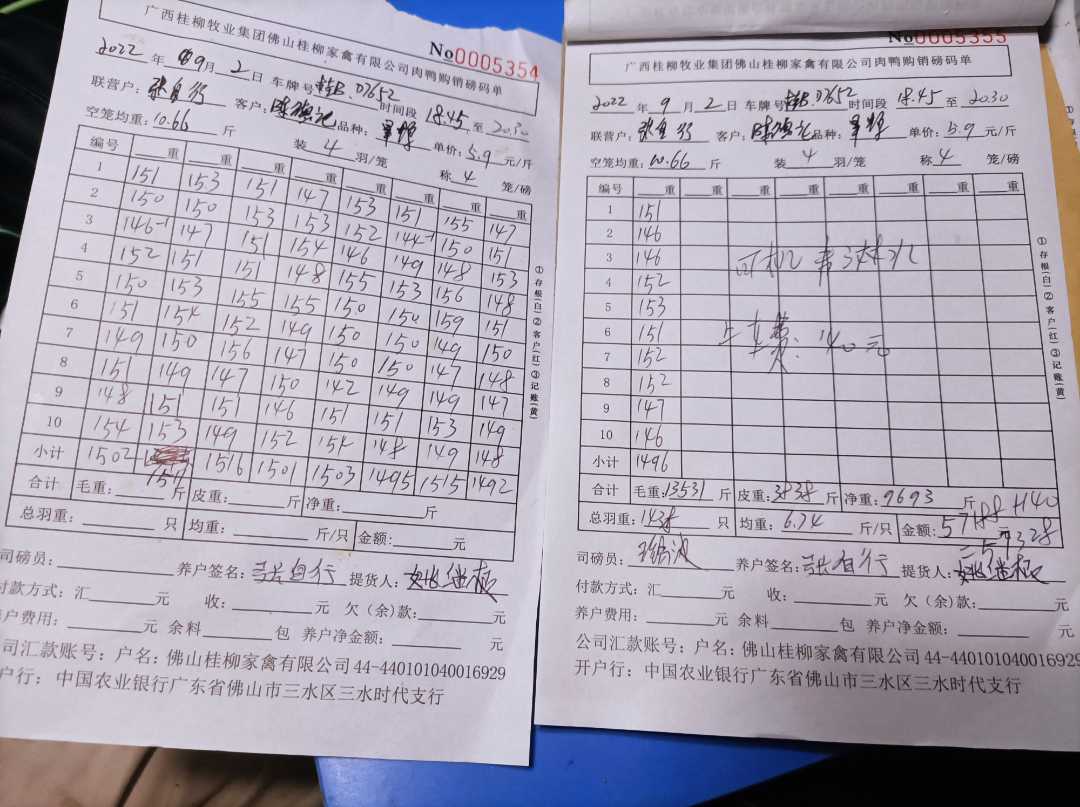 广西桂柳牧业集团佛山桂柳家禽有限公司肉鸭购销磅码单
No0005354
2022 年 9 月 2 日 车牌号 07652 时间段 18.45 至 20.30
联营户: 客户: 品种: 单价: 5.9 元/斤
空笼均重: 10.66 斤 装 4 羽/笼 称 4 笼/磅
编号 重 重 重 重 重 重 重 重
1 151 153 151 147 153 151 155 147
2 150 150 153 153 152 144-1 150 151
3 146-1 147 151 154 146 149 148 153
4 152 151 151 148 155 153 156 148
5 150 153 155 155 150 150 159 151
6 151 154 152 149 150 150 149 150
7 149 150 156 147 150 150 147 148
8 151 149 147 150 142 149 149 147
9 148 151 151 146 151 151 153 149
10 154 153 149 152 154 148 149 148
小计 1502 1516 1501 1503 1495 1515 1492
合计 毛重: 斤 皮重: 斤 净重: 斤
总羽重: 只 均重: 斤/只 金额: 元
司磅员: 养户签名: 张自行 提货人:
付款方式: 汇 元 收: 元 欠(余)款: 元
养户费用: 元 余料 包 养户净金额: 元
公司汇款账号: 户名: 佛山桂柳家禽有限公司 44-440101040016929
开户行: 中国农业银行广东省佛山市三水区三水时代支行
①存根(白)②客户(红)③记账(黄)
No0005355
广西桂柳牧业集团佛山桂柳家禽有限公司肉鸭购销磅码单
2022 年 9 月 2 日 车牌号 07652 时间段 18.45 至 20.30
联营户: 客户: 品种: 单价: 5.9 元/斤
空笼均重: 10.66 斤 装 4 羽/笼 称 4 笼/磅
编号 重 重 重 重 重 重 重 重
1 151
2 146
3 146
4 152
5 153
6 151
7 152
8 152
9 147
10 146
小计 1496
司机
上车费: 140元
合计 毛重: 13531 斤 皮重: 3838 斤 净重: 9693 斤
总羽重: 1438 只 均重: 6.74 斤/只 金额: 57188 元 +140
=57328
司磅员: 养户签名: 张自行 提货人:
付款方式: 汇 元 收: 元 欠(余)款: 元
养户费用: 元 余料 包 养户净金额: 元
公司汇款账号: 户名: 佛山桂柳家禽有限公司 44-440101040016929
开户行: 中国农业银行广东省佛山市三水区三水时代支行
①存根(白)②客户(红)③记账(黄)